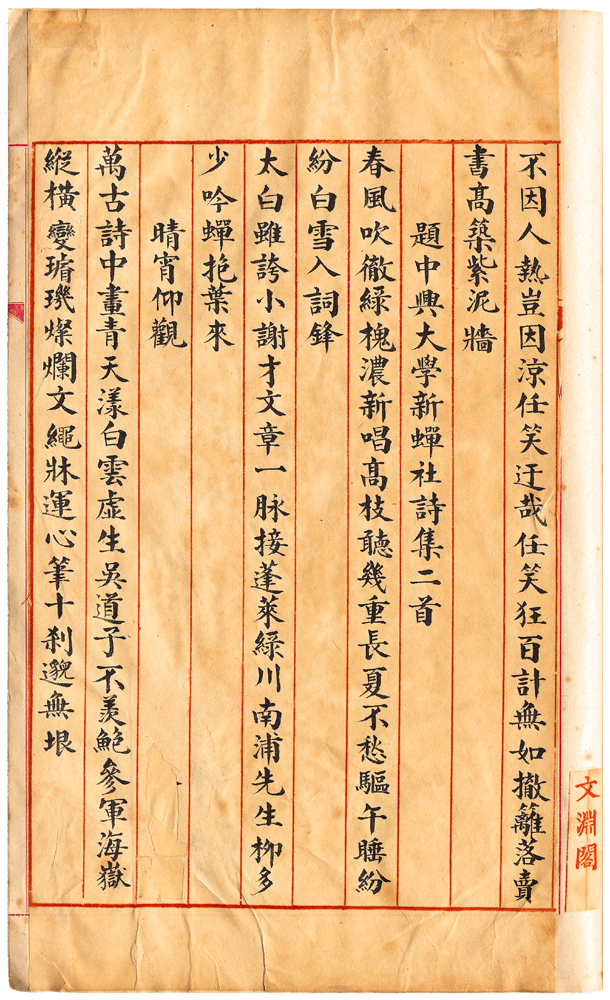 不因人熱豈因涼任笑迂哉任笑狂百計無如撤籬落賣
書高築紫泥牆
題中興大學新蟬社詩集二首
春風吹徹綠槐濃新唱高枝聽幾重長夏不愁驅午睡紛
紛白雪入詞鋒
太白雖誇小謝才文章一脉接蓬萊綠川南浦先生柳多
少吟蟬抱葉來
晴宵仰觀
萬古詩中畫青天漾白雲虛生吳道子不羨鮑參軍海嶽
縱橫變璿璣燦爛文繩牀運心筆十剎邈無垠
文淵閣